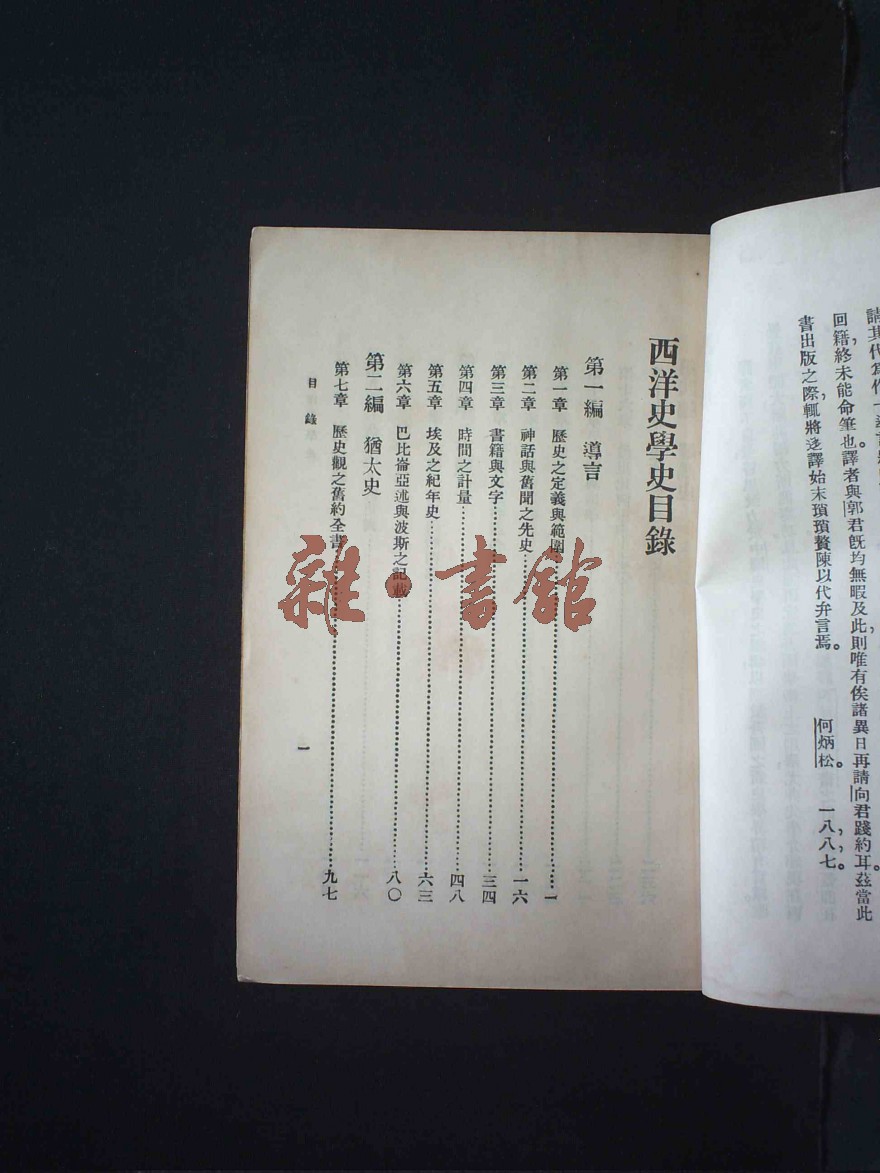 請其代爲作一
回籍,終未能命筆也。譯者與郭君旣均無暇及此,則唯有俟諸異日再請向君踐約耳。茲當此
書出版之際,輒將迻譯始末瑣瑣贅陳,以代弁言焉。
何炳松。一八,八,七。
西洋史學史目錄
第一編 導言
第一章 歷史之定義與範圍……一
第二章 神話與舊聞之先史……一六
第三章 書籍與文字……三四
第四章 時間之計量……四八
第五章 埃及之紀年史……六三
第六章 巴比崙亞述與波斯之記載……八〇
第二編 猶太史
第七章 歷史觀之舊約全書……九七
目錄
一
雜·書館